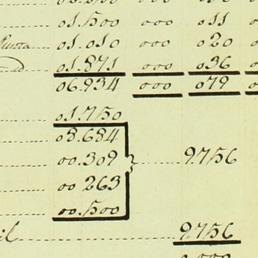 01.500 000 011
01.010 000 020
01.871 000 036
06.934 000 079
01.750
08.684
00.309 9.756
00 263
00.500
9.756